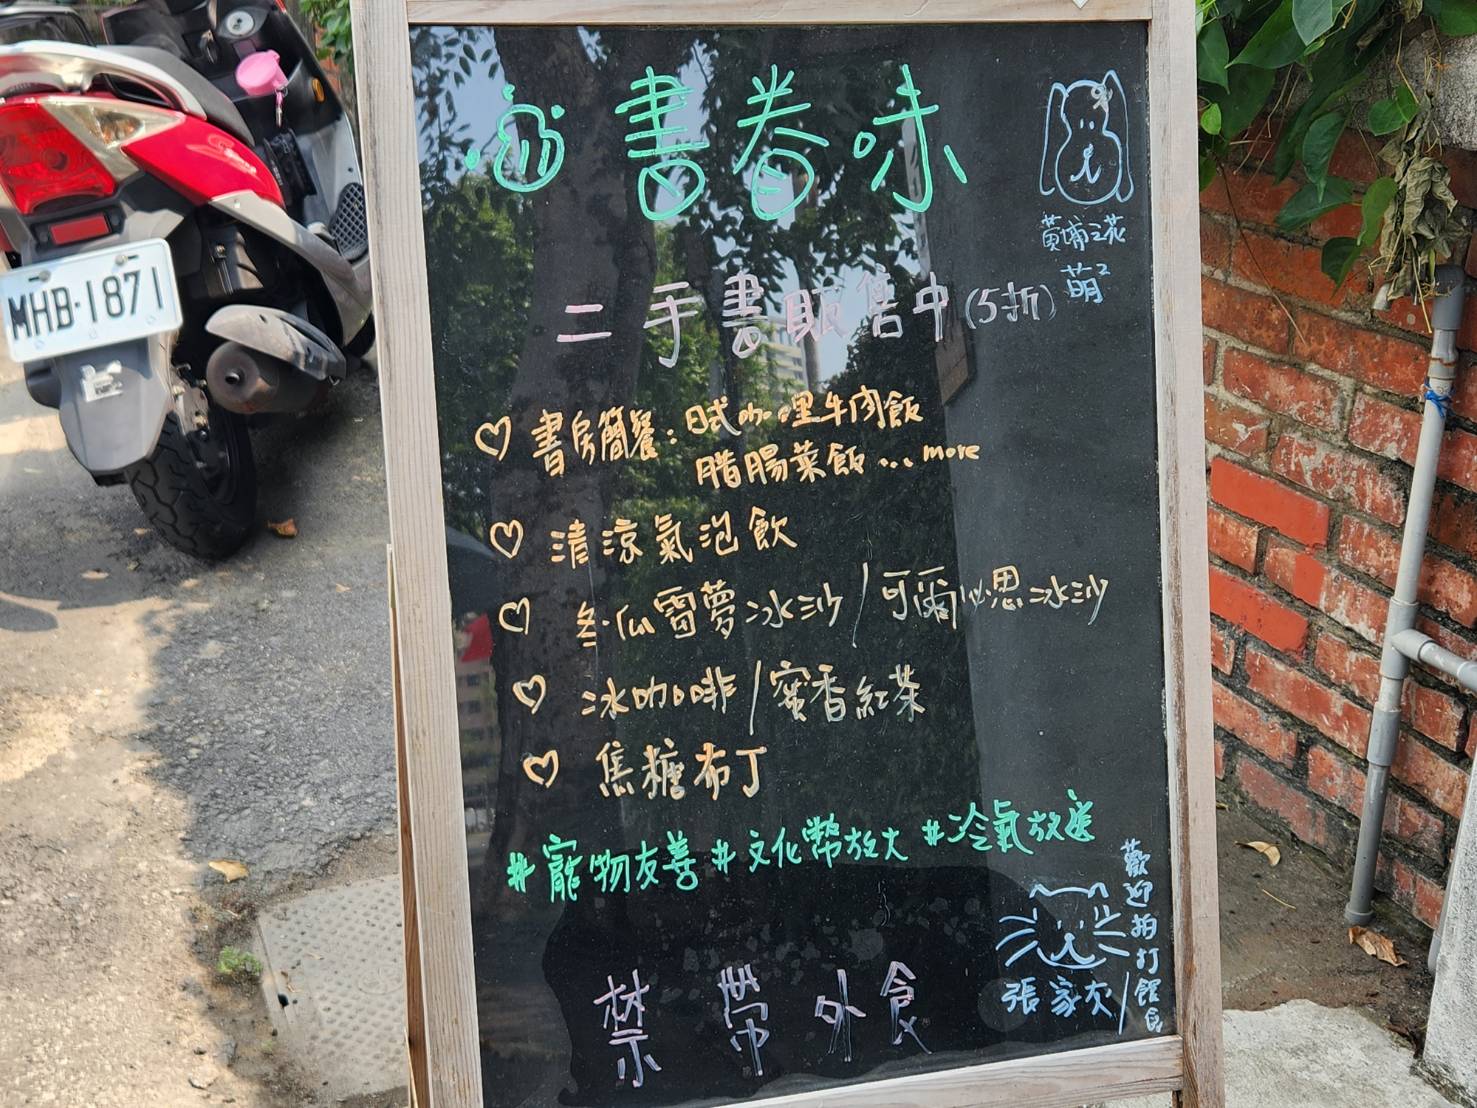 書卷味
黃埔之花
萌²
二手書販售中(5折)
♡ 書房簡餐:日式咖哩牛肉飯
腊腸菜飯...more
♡ 清涼氣泡飲
♡ 冬瓜雪夢冰沙/可爾必思冰沙
♡ 冰咖啡/蜜香紅茶
♡ 焦糖布丁
#寵物友善 #文化幣放大 #冷氣放送
歡迎拍打餵食
張家灰/
禁帶外食
MHB-1871